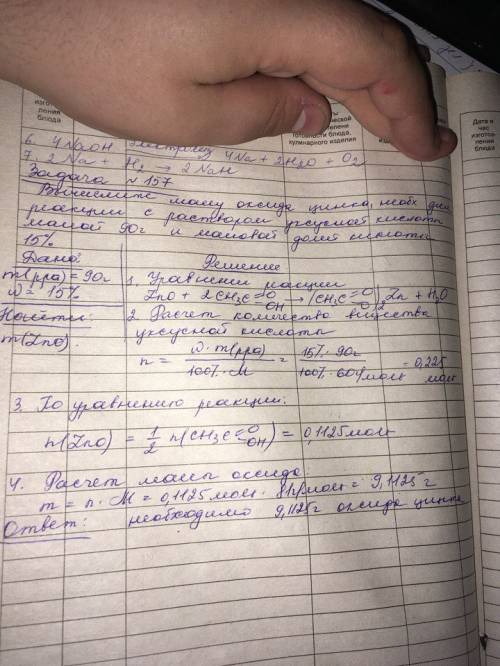 изгото-
ления
блюда
готовности блюда,
кулинарного изделия
Дата и
час
изготов-
ления
блюда
6. 4NaOH электролиз 4Na + 2H₂O + O₂
7. 2Na + H₂ → 2NaH
Задача №157
Вычислите массу оксида цинка, необх для
реакции с раствором уксусной кислоты
массой 90г и массовой долей кислоты
15%
Дано:
m(рра) = 90г
ω = 15%
Найти:
m(ZnO).
Решение
1. Уравнении реакции
ZnO + 2CH₃C=O OH → (CH₃C=O O)₂Zn + H₂O
2. Расчет количества вещества
уксусной кислоты
n = ω·m(рра) / 100%·M = 15%·90г / 100%·60г/моль = 0,225 моль
3. По уравнению реакции:
n(ZnO) = 1/2 n(CH₃C=O OH) = 0,1125 моль
4. Расчет массы оксида:
m = n·M = 0,1125 моль · 81г/моль = 9,1125 г
Ответ: необходимо 9,1125г оксида цинка